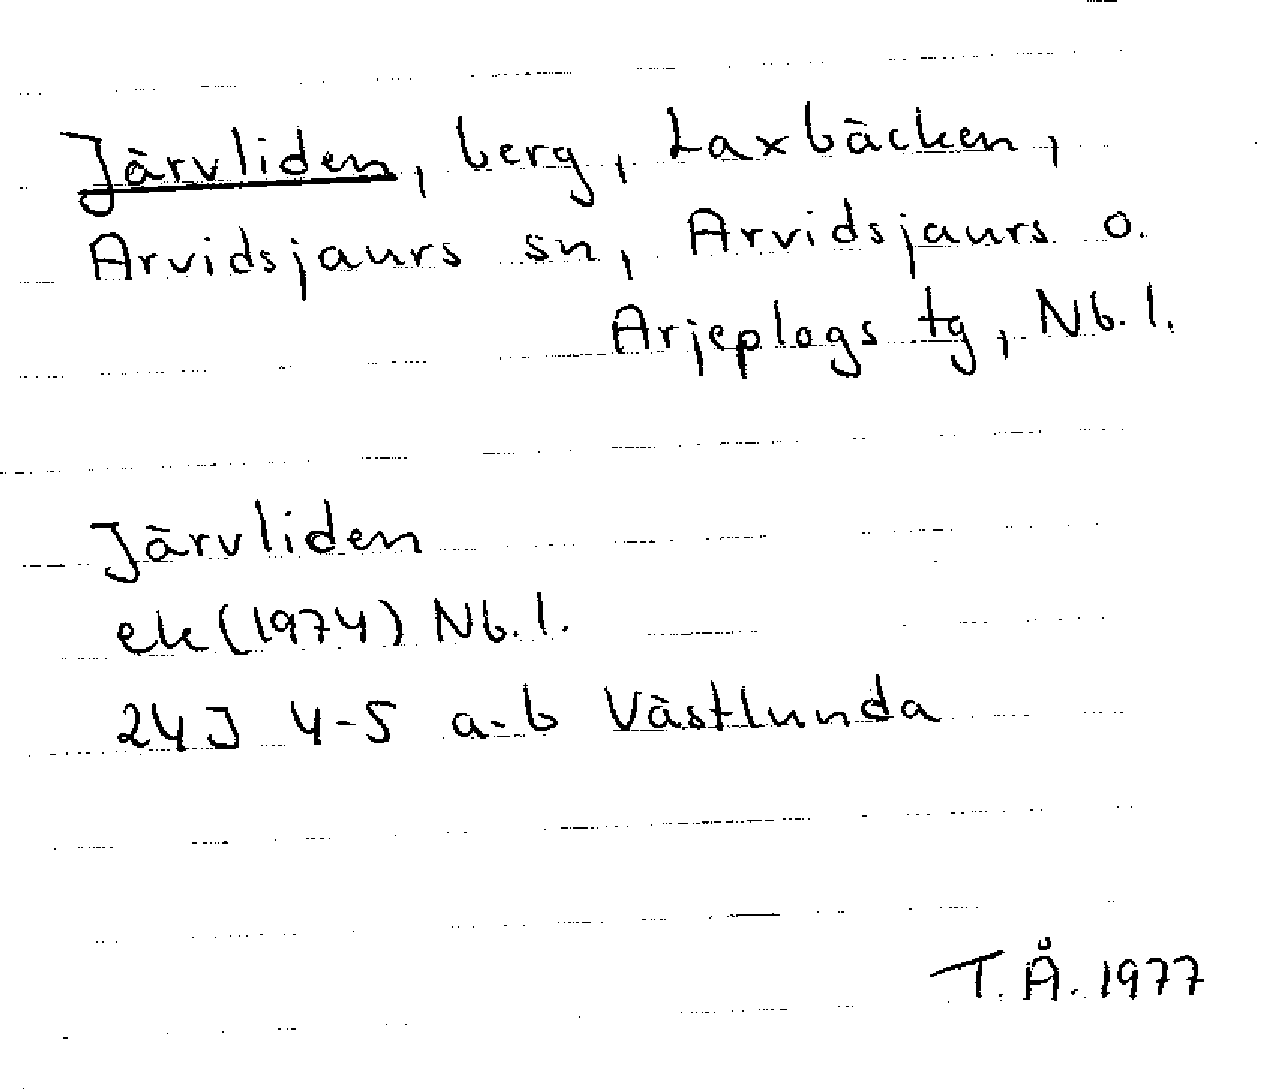 Järvliden, berg, Laxbäcken,
Arvidsjaurs sn, Arvidsjaurs o.
Arjeplogs tg, Nb. l.
Järvliden
ek (1974) Nb. l.
24J 4-5 a-b Västlunda
T. Å. 1977